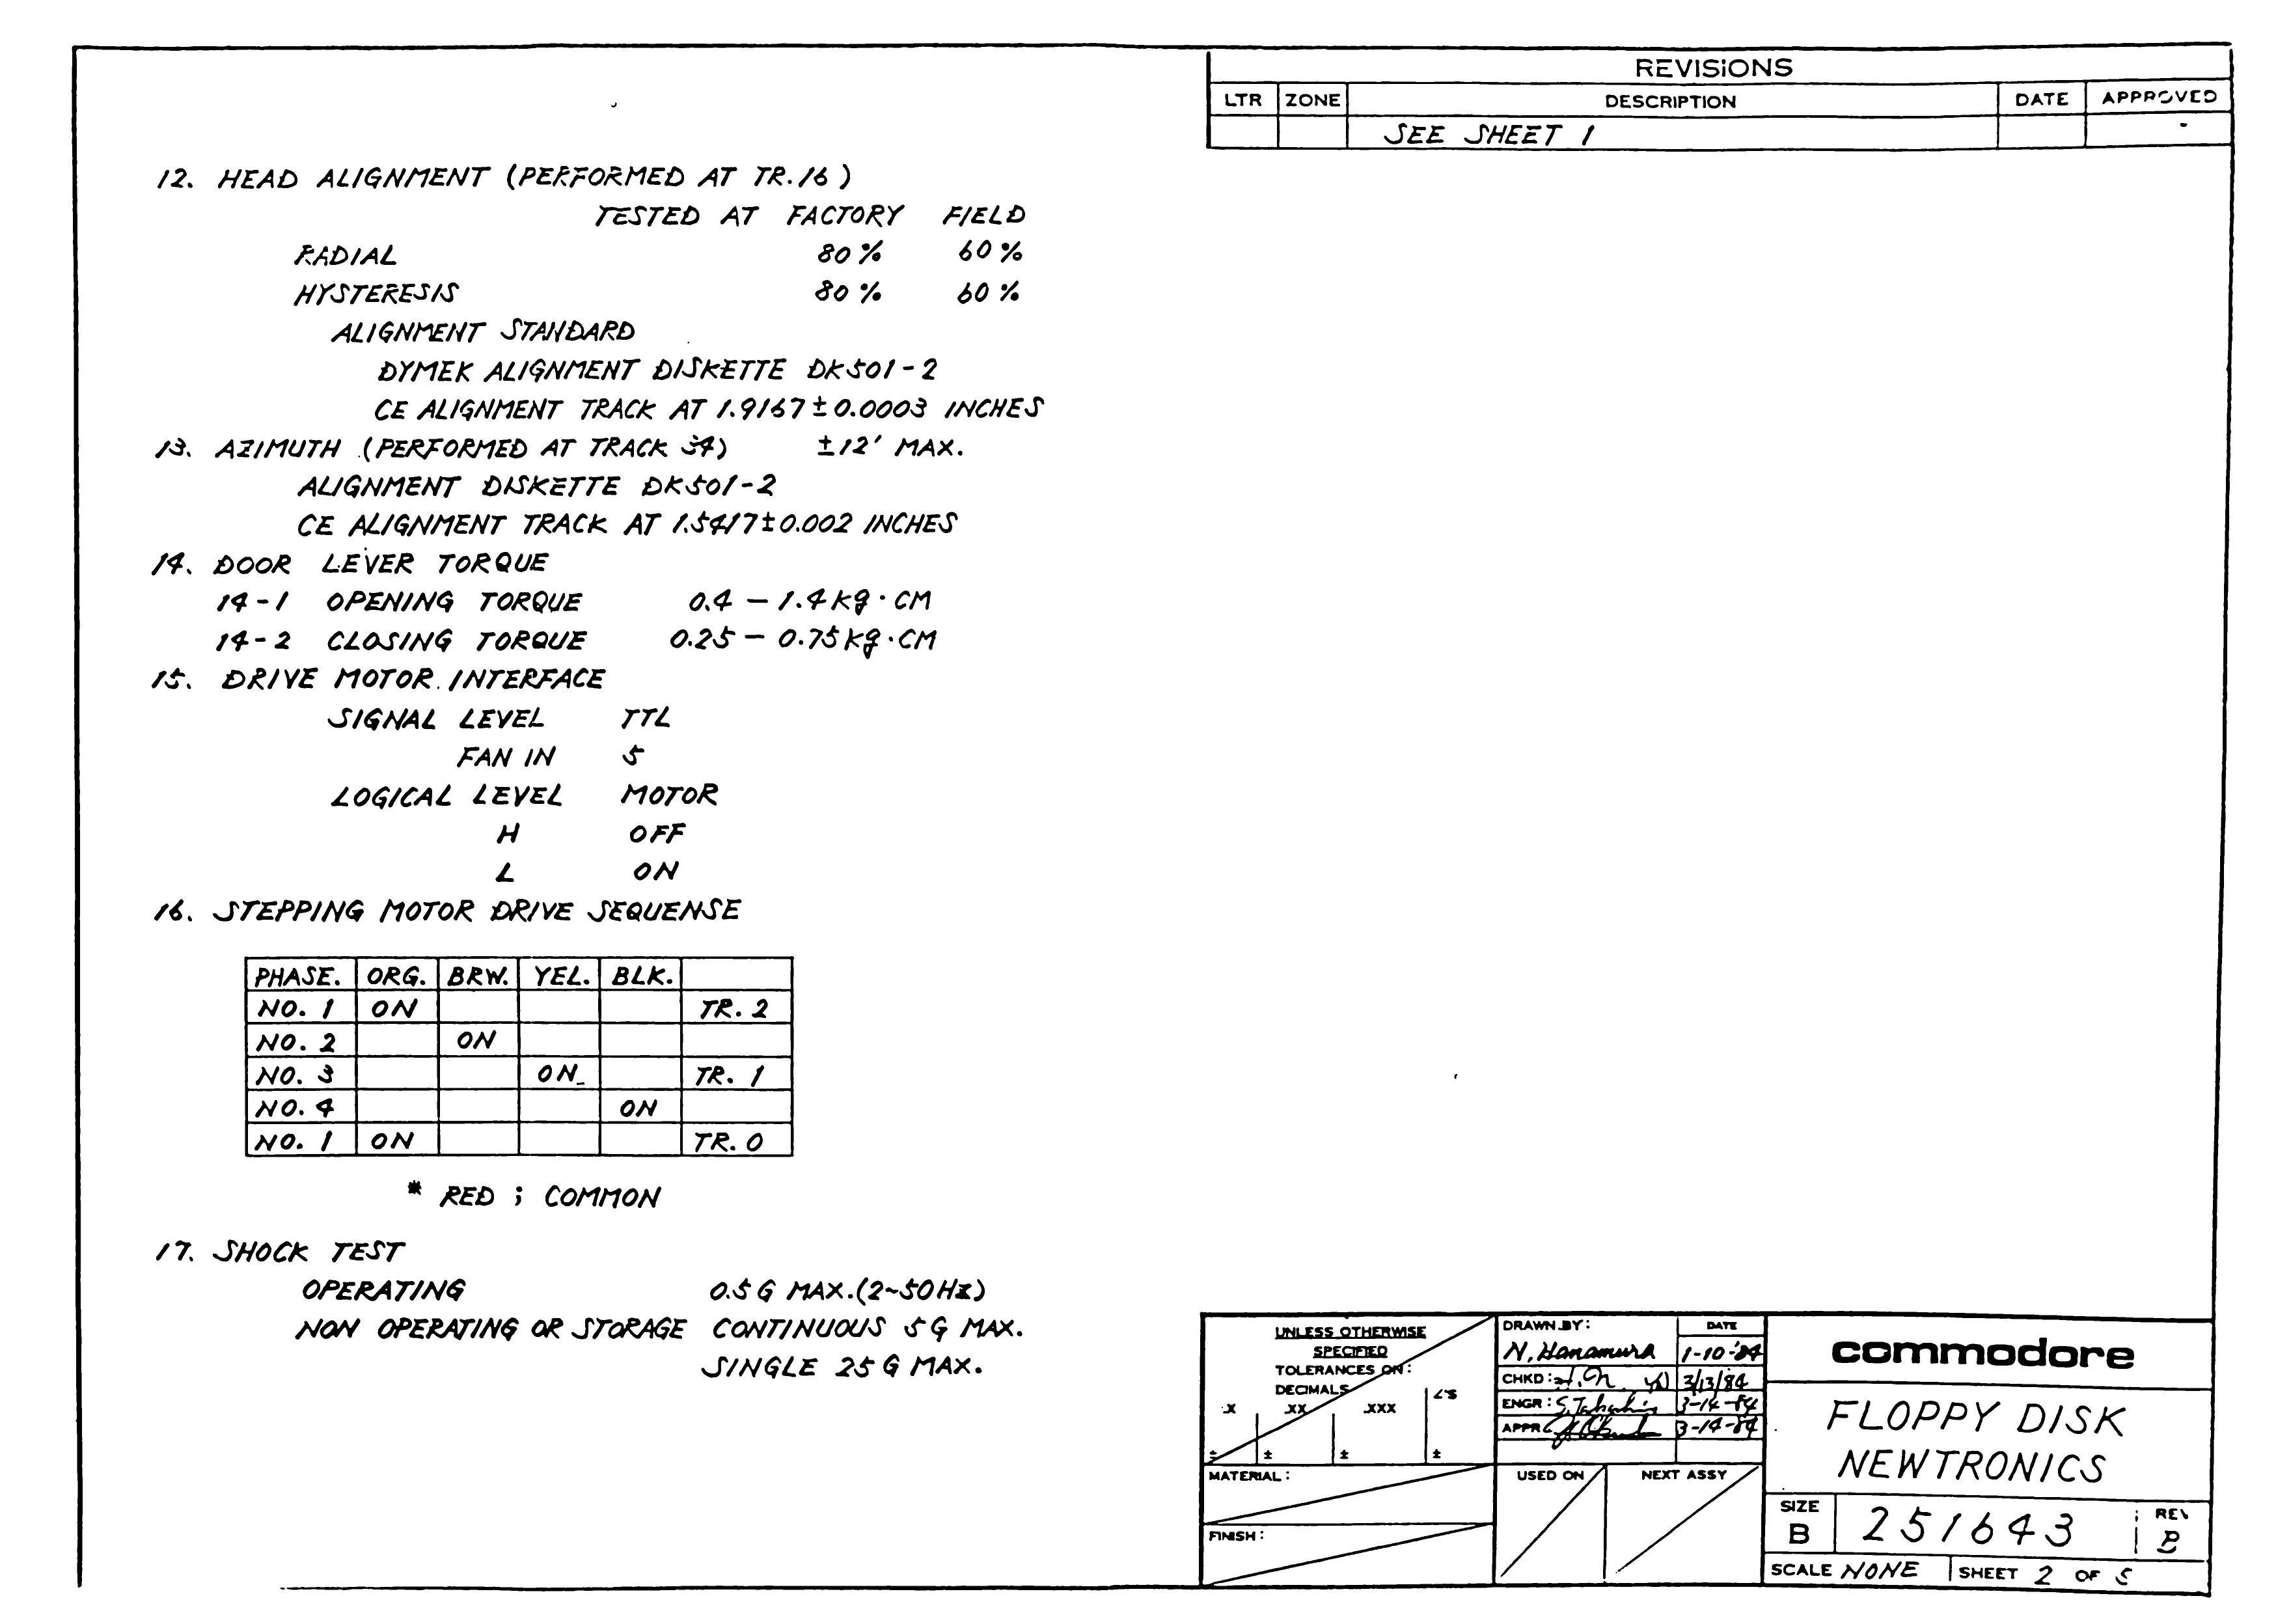 REVISIONS
LTR ZONE DESCRIPTION DATE APPROVED
SEE SHEET 1
12. HEAD ALIGNMENT (PERFORMED AT TR.16)
TESTED AT FACTORY FIELD
RADIAL 80% 60%
HYSTERESIS 80% 60%
ALIGNMENT STANDARD
DYMEK ALIGNMENT DISKETTE DK501-2
CE ALIGNMENT TRACK AT 1.9167±0.0003 INCHES
13. AZIMUTH (PERFORMED AT TRACK 34) ±12' MAX.
ALIGNMENT DISKETTE DK501-2
CE ALIGNMENT TRACK AT 1.5417±0.002 INCHES
14. DOOR LEVER TORQUE
14-1 OPENING TORQUE 0.4 - 1.4 Kg·CM
14-2 CLOSING TORQUE 0.25 - 0.75 Kg·CM
15. DRIVE MOTOR INTERFACE
SIGNAL LEVEL TTL
FAN IN 5
LOGICAL LEVEL MOTOR
H OFF
L ON
16. STEPPING MOTOR DRIVE SEQUENSE
PHASE. ORG. BRW. YEL. BLK.
NO. 1 ON TR. 2
NO. 2 ON
NO. 3 ON TR. 1
NO. 4 ON
NO. 1 ON TR. 0
* RED ; COMMON
17. SHOCK TEST
OPERATING 0.5 G MAX.(2~50Hz)
NON OPERATING OR STORAGE CONTINUOUS 5 G MAX.
SINGLE 25 G MAX.
UNLESS OTHERWISE
SPECIFIED
TOLERANCES ON:
DECIMALS
.X .XX .XXX ∠'S
± ± ± ±
MATERIAL:
FINISH:
DRAWN BY: DATE
N. Hanamura 1-10-'84
CHKD: 3/13/84
ENGR: 3-14-84
APPR 3-14-84
USED ON NEXT ASSY
commodore
FLOPPY DISK
NEWTRONICS
SIZE B 251643 REV B
SCALE NONE SHEET 2 OF 5